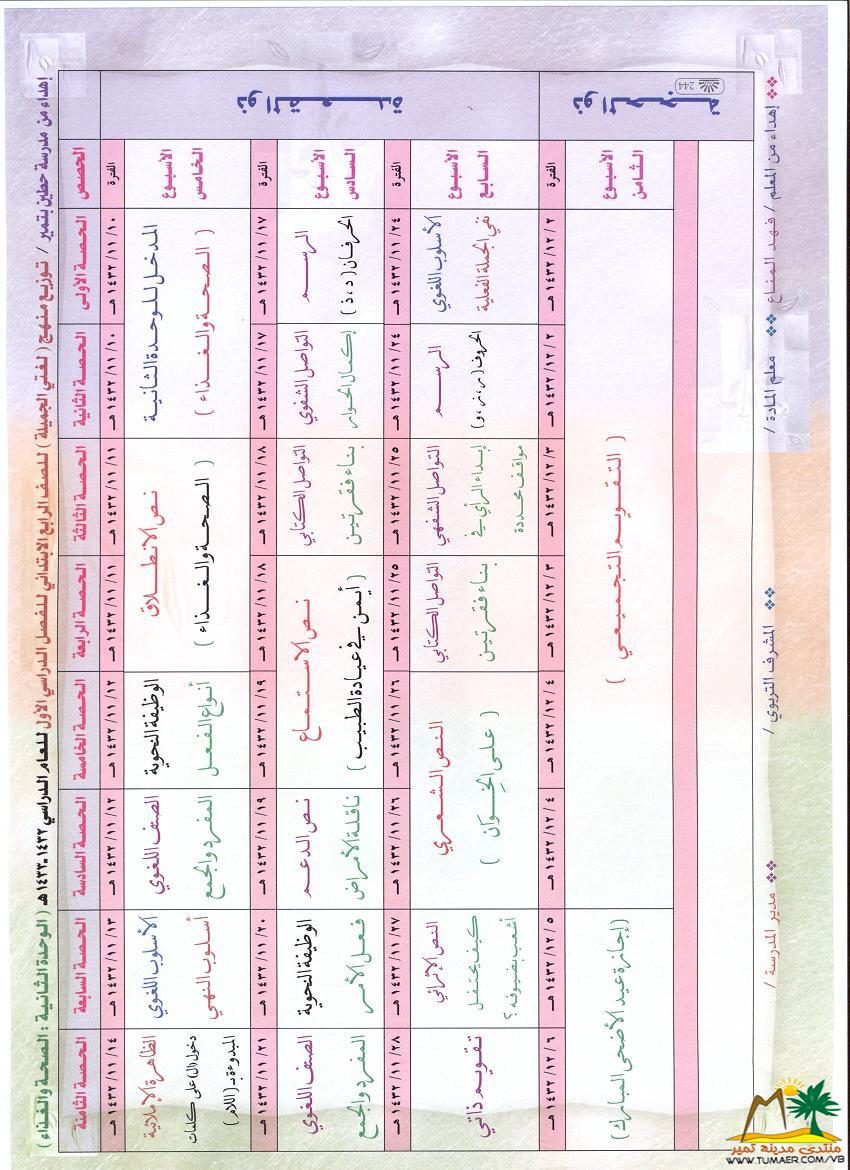 إهداء من مدرسة حطين بتمير / توزيع منهج ( لغتي الجميلة ) للصف الرابع الابتدائي للفصل الدراسي الأول للعام الدراسي ١٤٣٢-١٤٣٣هـ ( الوحدة الثانية : الصحة والغذاء )
الحصص
الحصة الأولى
الحصة الثانية
الحصة الثالثة
الحصة الرابعة
الحصة الخامسة
الحصة السادسة
الحصة السابعة
الحصة الثامنة
ذو القعدة
الفترة
١٤٣٢/١١/١٠ هـ
١٤٣٢/١١/١٠ هـ
١٤٣٢/١١/١١ هـ
١٤٣٢/١١/١١ هـ
١٤٣٢/١١/١٢ هـ
١٤٣٢/١١/١٢ هـ
١٤٣٢/١١/١٣ هـ
١٤٣٢/١١/١٤ هـ
الأسبوع
الخامس
المدخل للوحدة الثانية
( الصحة والغذاء )
نص الانطلاق
( الصحة والغذاء )
الوظيفة النحوية
أنواع الفعل
الصنف اللغوي
المفرد والجمع
الأسلوب اللغوي
أسلوب النهي
الظاهرة الإملائية
دخول (ال) على كلمات
المبدوءة بـ (اللام)
الفترة
١٤٣٢/١١/١٧ هـ
١٤٣٢/١١/١٧ هـ
١٤٣٢/١١/١٨ هـ
١٤٣٢/١١/١٨ هـ
١٤٣٢/١١/١٩ هـ
١٤٣٢/١١/١٩ هـ
١٤٣٢/١١/٢٠ هـ
١٤٣٢/١١/٢١ هـ
الأسبوع
السادس
الرسم
الحرفان ( د ، ذ )
التواصل الشفوي
إكمال الحوار
التواصل الكتابي
بناء فقرتين
نص الاستماع
( أيمن في عيادة الطبيب )
نص الدعم
ناقلة الأمراض
الوظيفة النحوية
فعل الأمر
الصنف اللغوي
المفرد والجمع
الفترة
١٤٣٢/١١/٢٤ هـ
١٤٣٢/١١/٢٤ هـ
١٤٣٢/١١/٢٥ هـ
١٤٣٢/١١/٢٥ هـ
١٤٣٢/١١/٢٦ هـ
١٤٣٢/١١/٢٦ هـ
١٤٣٢/١١/٢٧ هـ
١٤٣٢/١١/٢٨ هـ
الأسبوع
السابع
الأسلوب اللغوي
نفي الجملة الفعلية
الرسم
الحروف ( ر ، ز ، و )
التواصل الشفهي
إبداء الرأي في
مواقف محددة
التواصل الكتابي
بناء فقرتين
النص الشعري
( على الخِوان )
النص الإثرائي
كيف يحتفل
أشعب بضيوفه ؟
تقويم ذاتي
ذو الحجة
244
الفترة
١٤٣٢/١٢/٢ هـ
١٤٣٢/١٢/٢ هـ
١٤٣٢/١٢/٣ هـ
١٤٣٢/١٢/٣ هـ
١٤٣٢/١٢/٤ هـ
١٤٣٢/١٢/٤ هـ
١٤٣٢/١٢/٥ هـ
١٤٣٢/١٢/٦ هـ
الأسبوع
الثامن
( التقويم التجميعي )
( إجازة عيد الأضحى المبارك )
إهداء من المعلم / فهد المناع
معلم المادة /
المشرف التربوي /
مدير المدرسة /
منتدى مدينة تمير
WWW.TUMAER.COM/VB